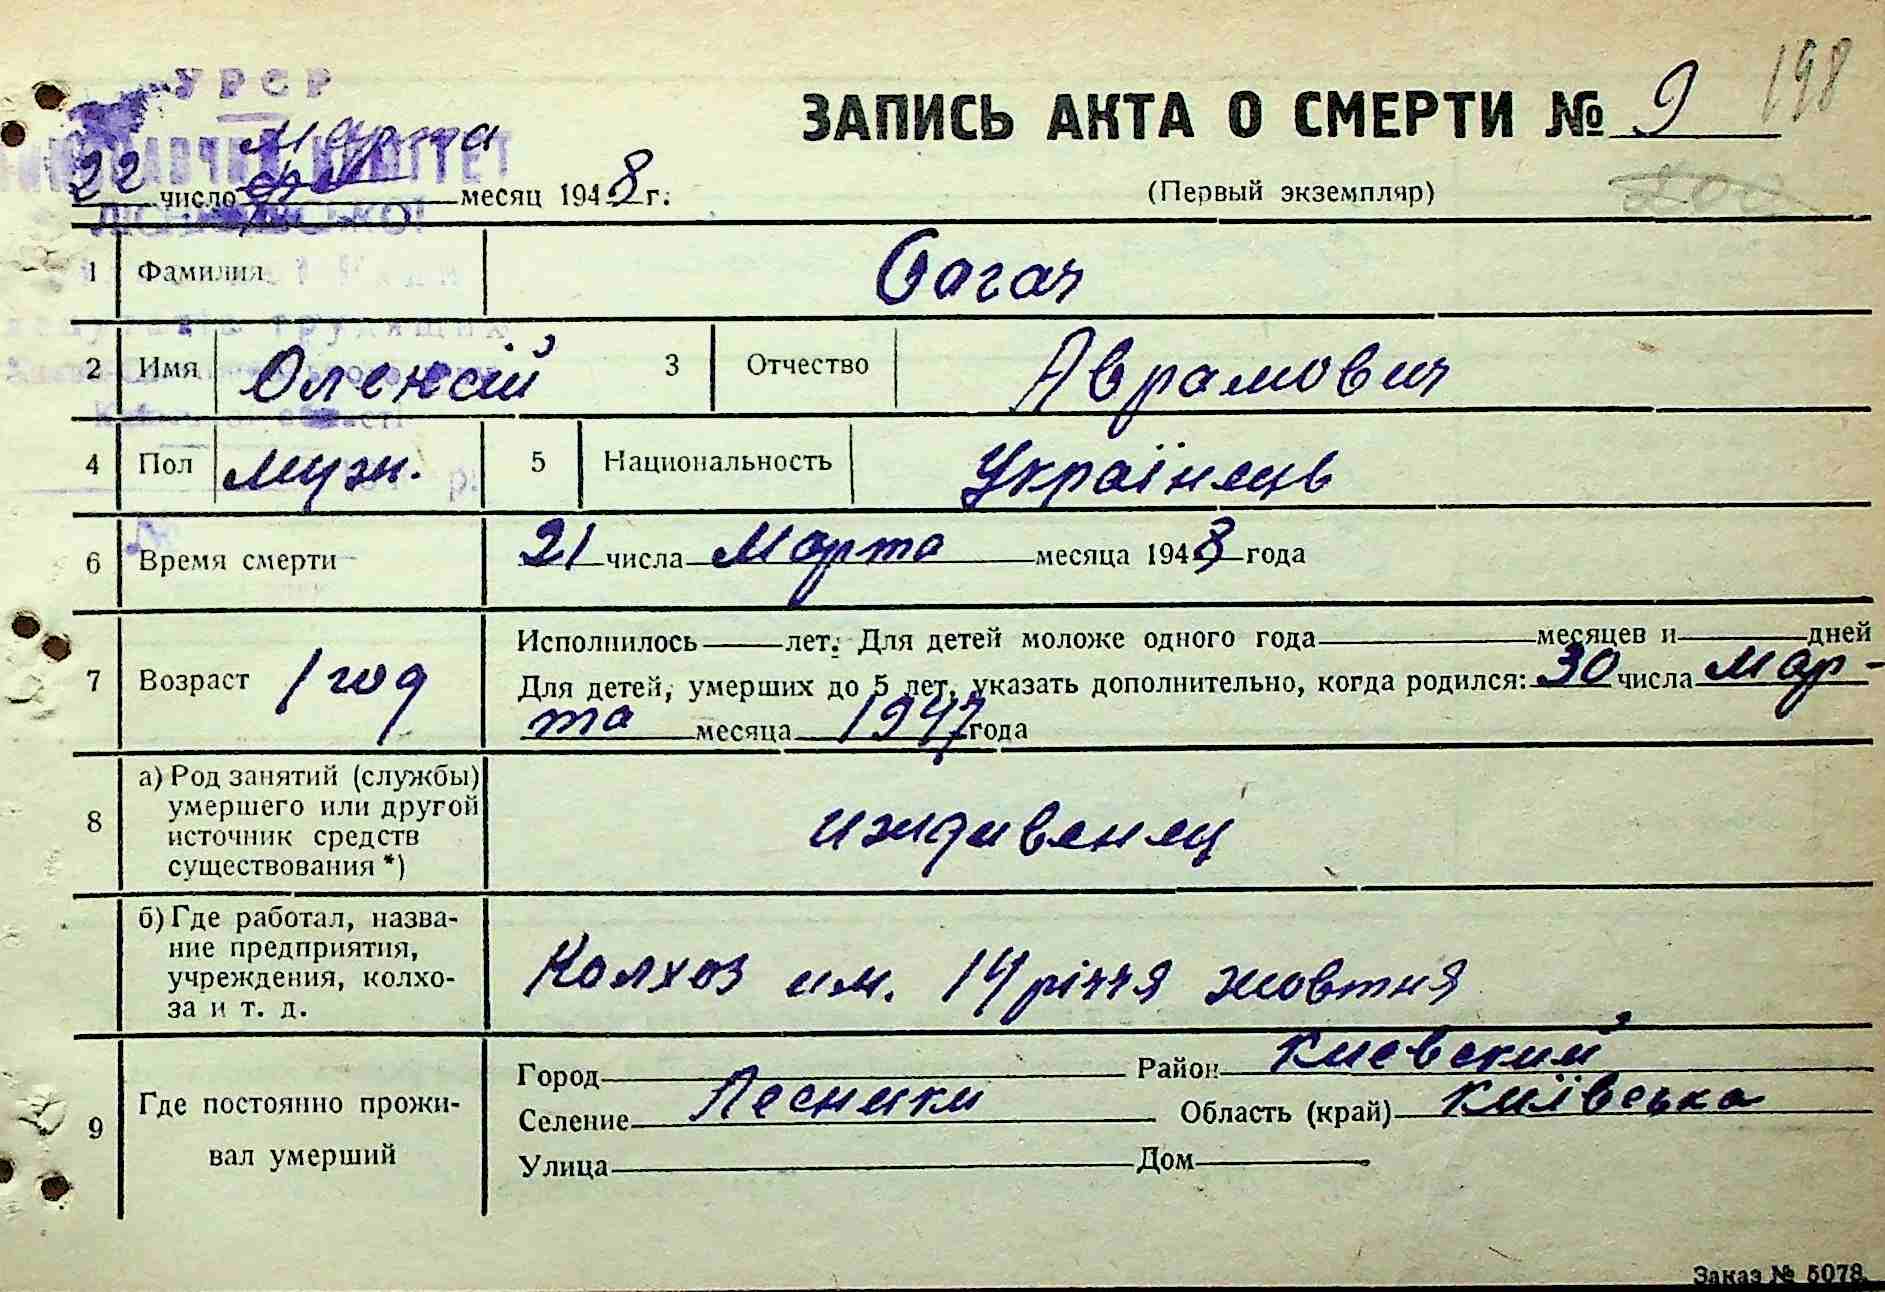 УРСР
ЗАПИСЬ АКТА О СМЕРТИ № 9
198
22 число марта месяц 1948 г.
(Первый экземпляр)
200
1 Фамилия Багач
2 Имя Олексій 3 Отчество Аврамович
4 Пол мужн. 5 Национальность Українець
6 Время смерти 21 числа Марта месяца 1948 года
7 Возраст 1 год
Исполнилось лет. Для детей моложе одного года месяцев и дней
Для детей, умерших до 5 лет, указать дополнительно, когда родился: 30 числа Мар-
та месяца 1947 года
8 а) Род занятий (службы)
умершего или другой
источник средств
существования *)
иждивенец
б) Где работал, назва-
ние предприятия,
учреждения, колхо-
за и т. д.
Колхоз им. 14 річчя жовтня
9 Где постоянно прожи-
вал умерший
Город Район Киевский
Селение Лесники Область (край) Київська
Улица Дом
Заказ № 5078.